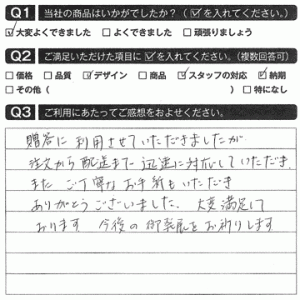 Q1 当社の商品はいかがでしたか?(☑を入れてください。)
☑大変よくできました □よくできました □頑張りましょう
Q2 ご満足いただけた項目に☑を入れてください。(複数回答可)
□価格 □品質 ☑デザイン □商品 ☑スタッフの対応 ☑納期
□その他( ) □特になし
Q3 ご利用にあたってご感想をおよせください。
贈答に利用させていただきましたが
注文から配送まで迅速に対応していただき、
また ご丁寧なお手紙もいただき
ありがとうございました。大変満足して
おります 今後の御発展をお祈りします